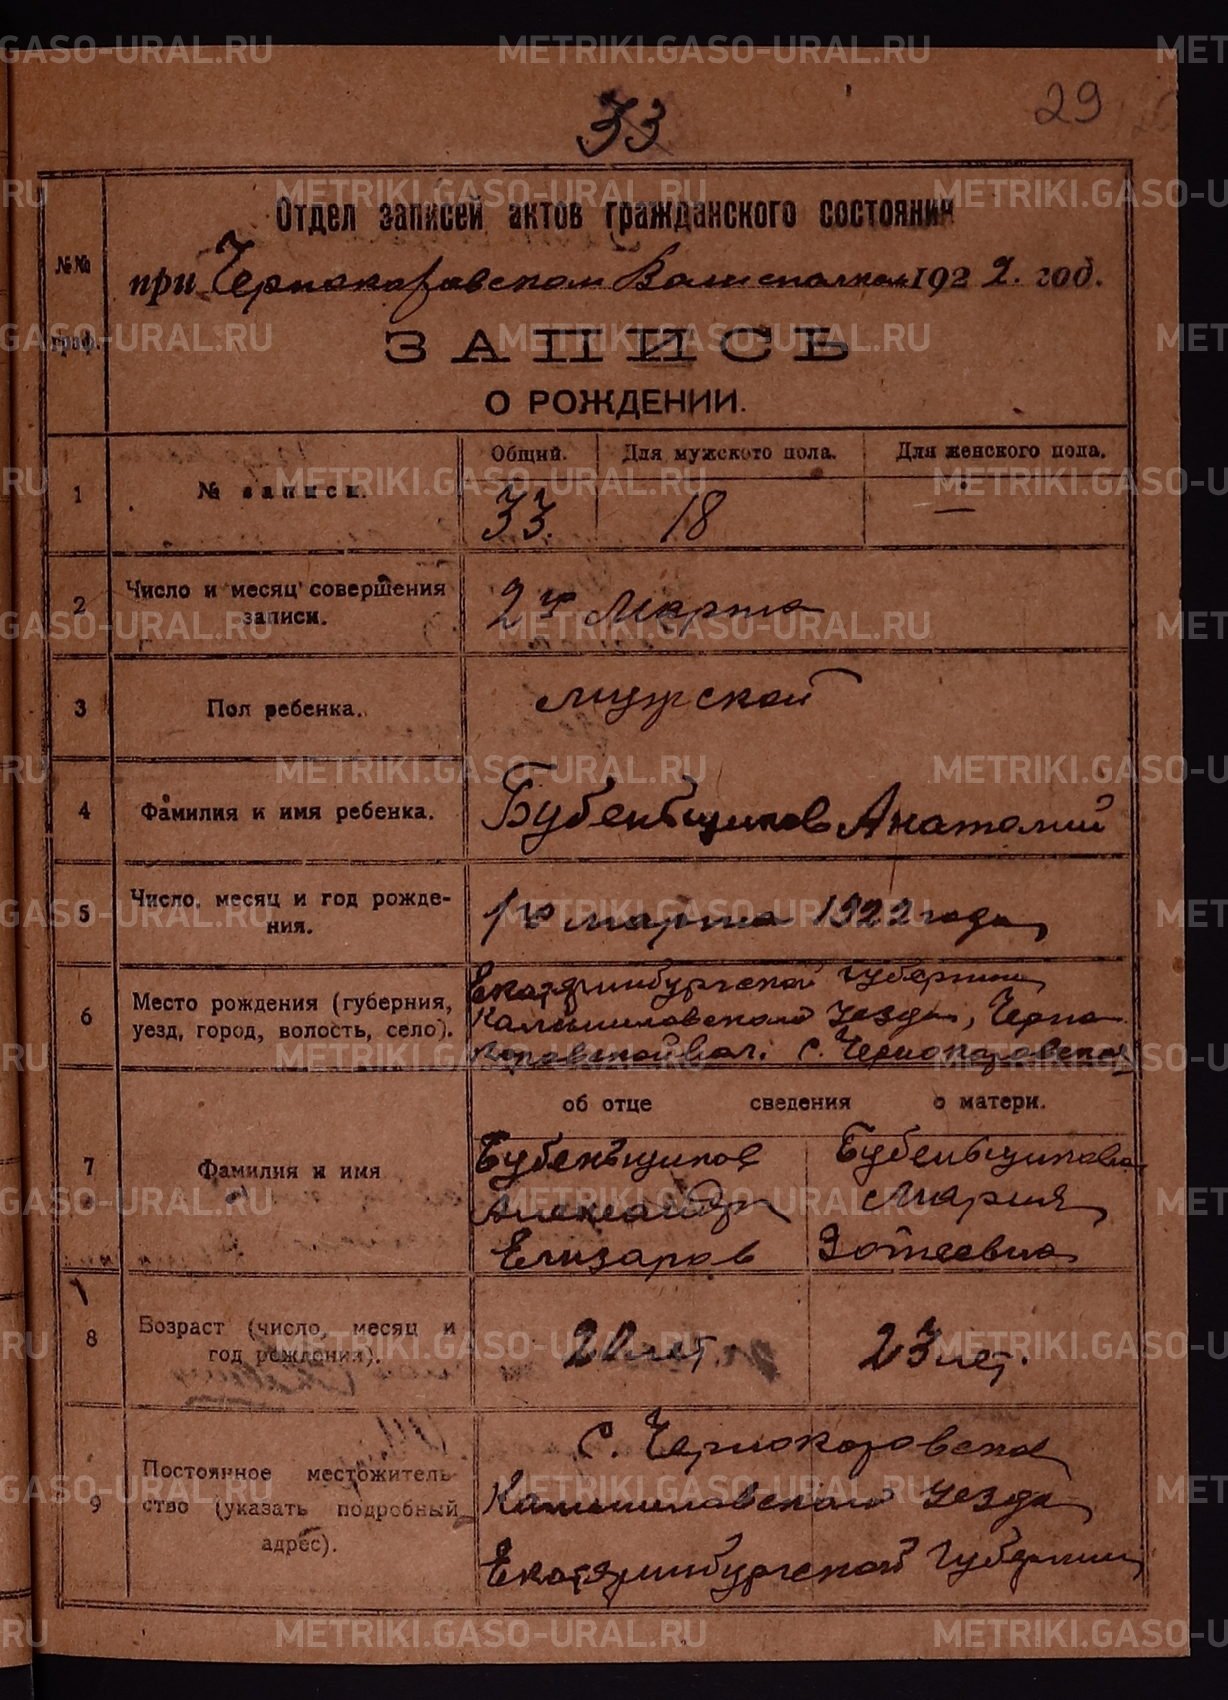 METRIKI.GASO-URAL.RU
29
33
Отдел записей актов гражданского состояния
№№ граф.
при Чернокоровском Волисполкоме 1922. год.
ЗАПИСЬ
О РОЖДЕНИИ.
Общий. Для мужского пола. Для женского пола.
1 № записи. 33. 18 —
2 Число и месяц совершения
записи. 2го Марта
3 Пол ребенка. мужской
4 Фамилия и имя ребенка. Бубеньщиков Анатолий
5 Число, месяц и год рожде-
ния. 1го марта 1922 года
6 Место рождения (губерния,
уезд, город, волость, село).
Екатеринбургской губернии
Камышловского уезда, Черно
коровской вол. с. Чернокоровское
об отце сведения о матери.
7 Фамилия и имя
Бубеньщиков Бубеньщикова
Александр Мария
Елизаров Зотеевна
8 Возраст (число, месяц и
год рождения). лет. 23 лет.
9 Постоянное местожитель-
ство (указать подробный
адрес).
с. Чернокоровское
Камышловского уезда
Екатеринбургской губернии